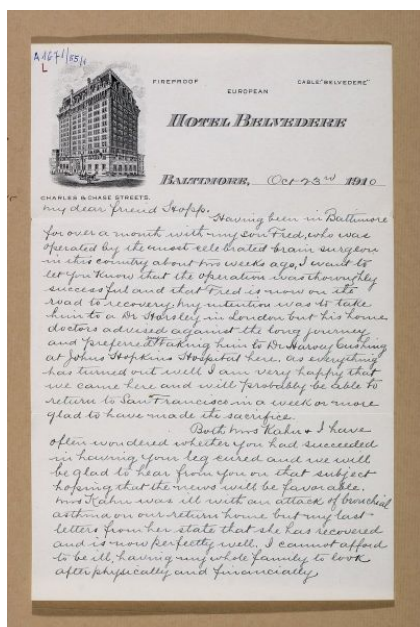 A 167 1/55/1
L
FIREPROOF
EUROPEAN
CABLE "BELVEDERE"
HOTEL BELVEDERE
BALTIMORE, Oct 23rd 1910
CHARLES & CHASE STREETS.
My dear friend Hopp.
Having been in Baltimore
for over a month with my son Fred, who was
operated by the most celebrated brain surgeon
in this country about two weeks ago, I want to
let you know that the operation was thoroughly
successful and that Fred is now on the
road to recovery. My intention was to take
him to a Dr Horsley in London but his home
doctors advised against the long journey
and preferred taking him to Dr Harvey Cushing
at Johns Hopkins Hospital here, as everything
has turned out well I am very happy that
we came here and will probably be able to
return to San Francisco in a week or more
glad to have made the sacrifice.
Both Mrs Kahn & I have
often wondered whether you had succeeded
in having your leg cured and we will
be glad to hear from you on that subject
hoping that the news will be favorable.
Mrs Kahn was ill with an attack of bronchial
asthma on our return home but my last
letters from her state that she has recovered
and is now perfectly well. I cannot afford
to be ill, having my whole family to look
after physically and financially